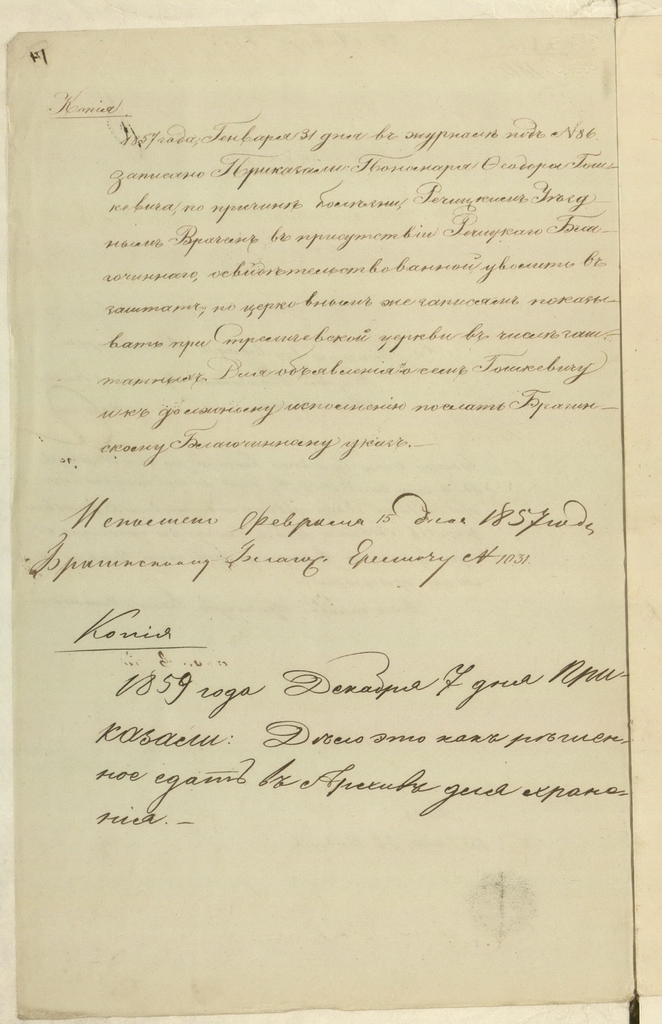 Копія
1857 года, Генваря 31 дня въ журналѣ подъ № 86
записано Приказали: Пономаря Ѳеодора Гош-
кевича, по причинѣ болѣзни, Речицкимъ Уѣзд-
нымъ Врачемъ въ присутствіи Речицкаго Бла-
гочиннаго, освидѣтельствованной уволить въ
заштатъ, по церковнымъ же записямъ показы-
вать при Стреличевской церкви въ числѣ заш-
татныхъ. Для объявленія о семъ Гошкевичу
и къ должному исполненію послать Брагин-
скому Благочинному указъ. —
Исполнено Февраля 15 дня 1857 года
Брагинскому Благоч. Еремичу № 1031.
Копія
1859 года Декабря 7 дня При-
казали: Дѣло это какъ рѣшен-
ное сдать въ Архивъ для хране-
нія. —